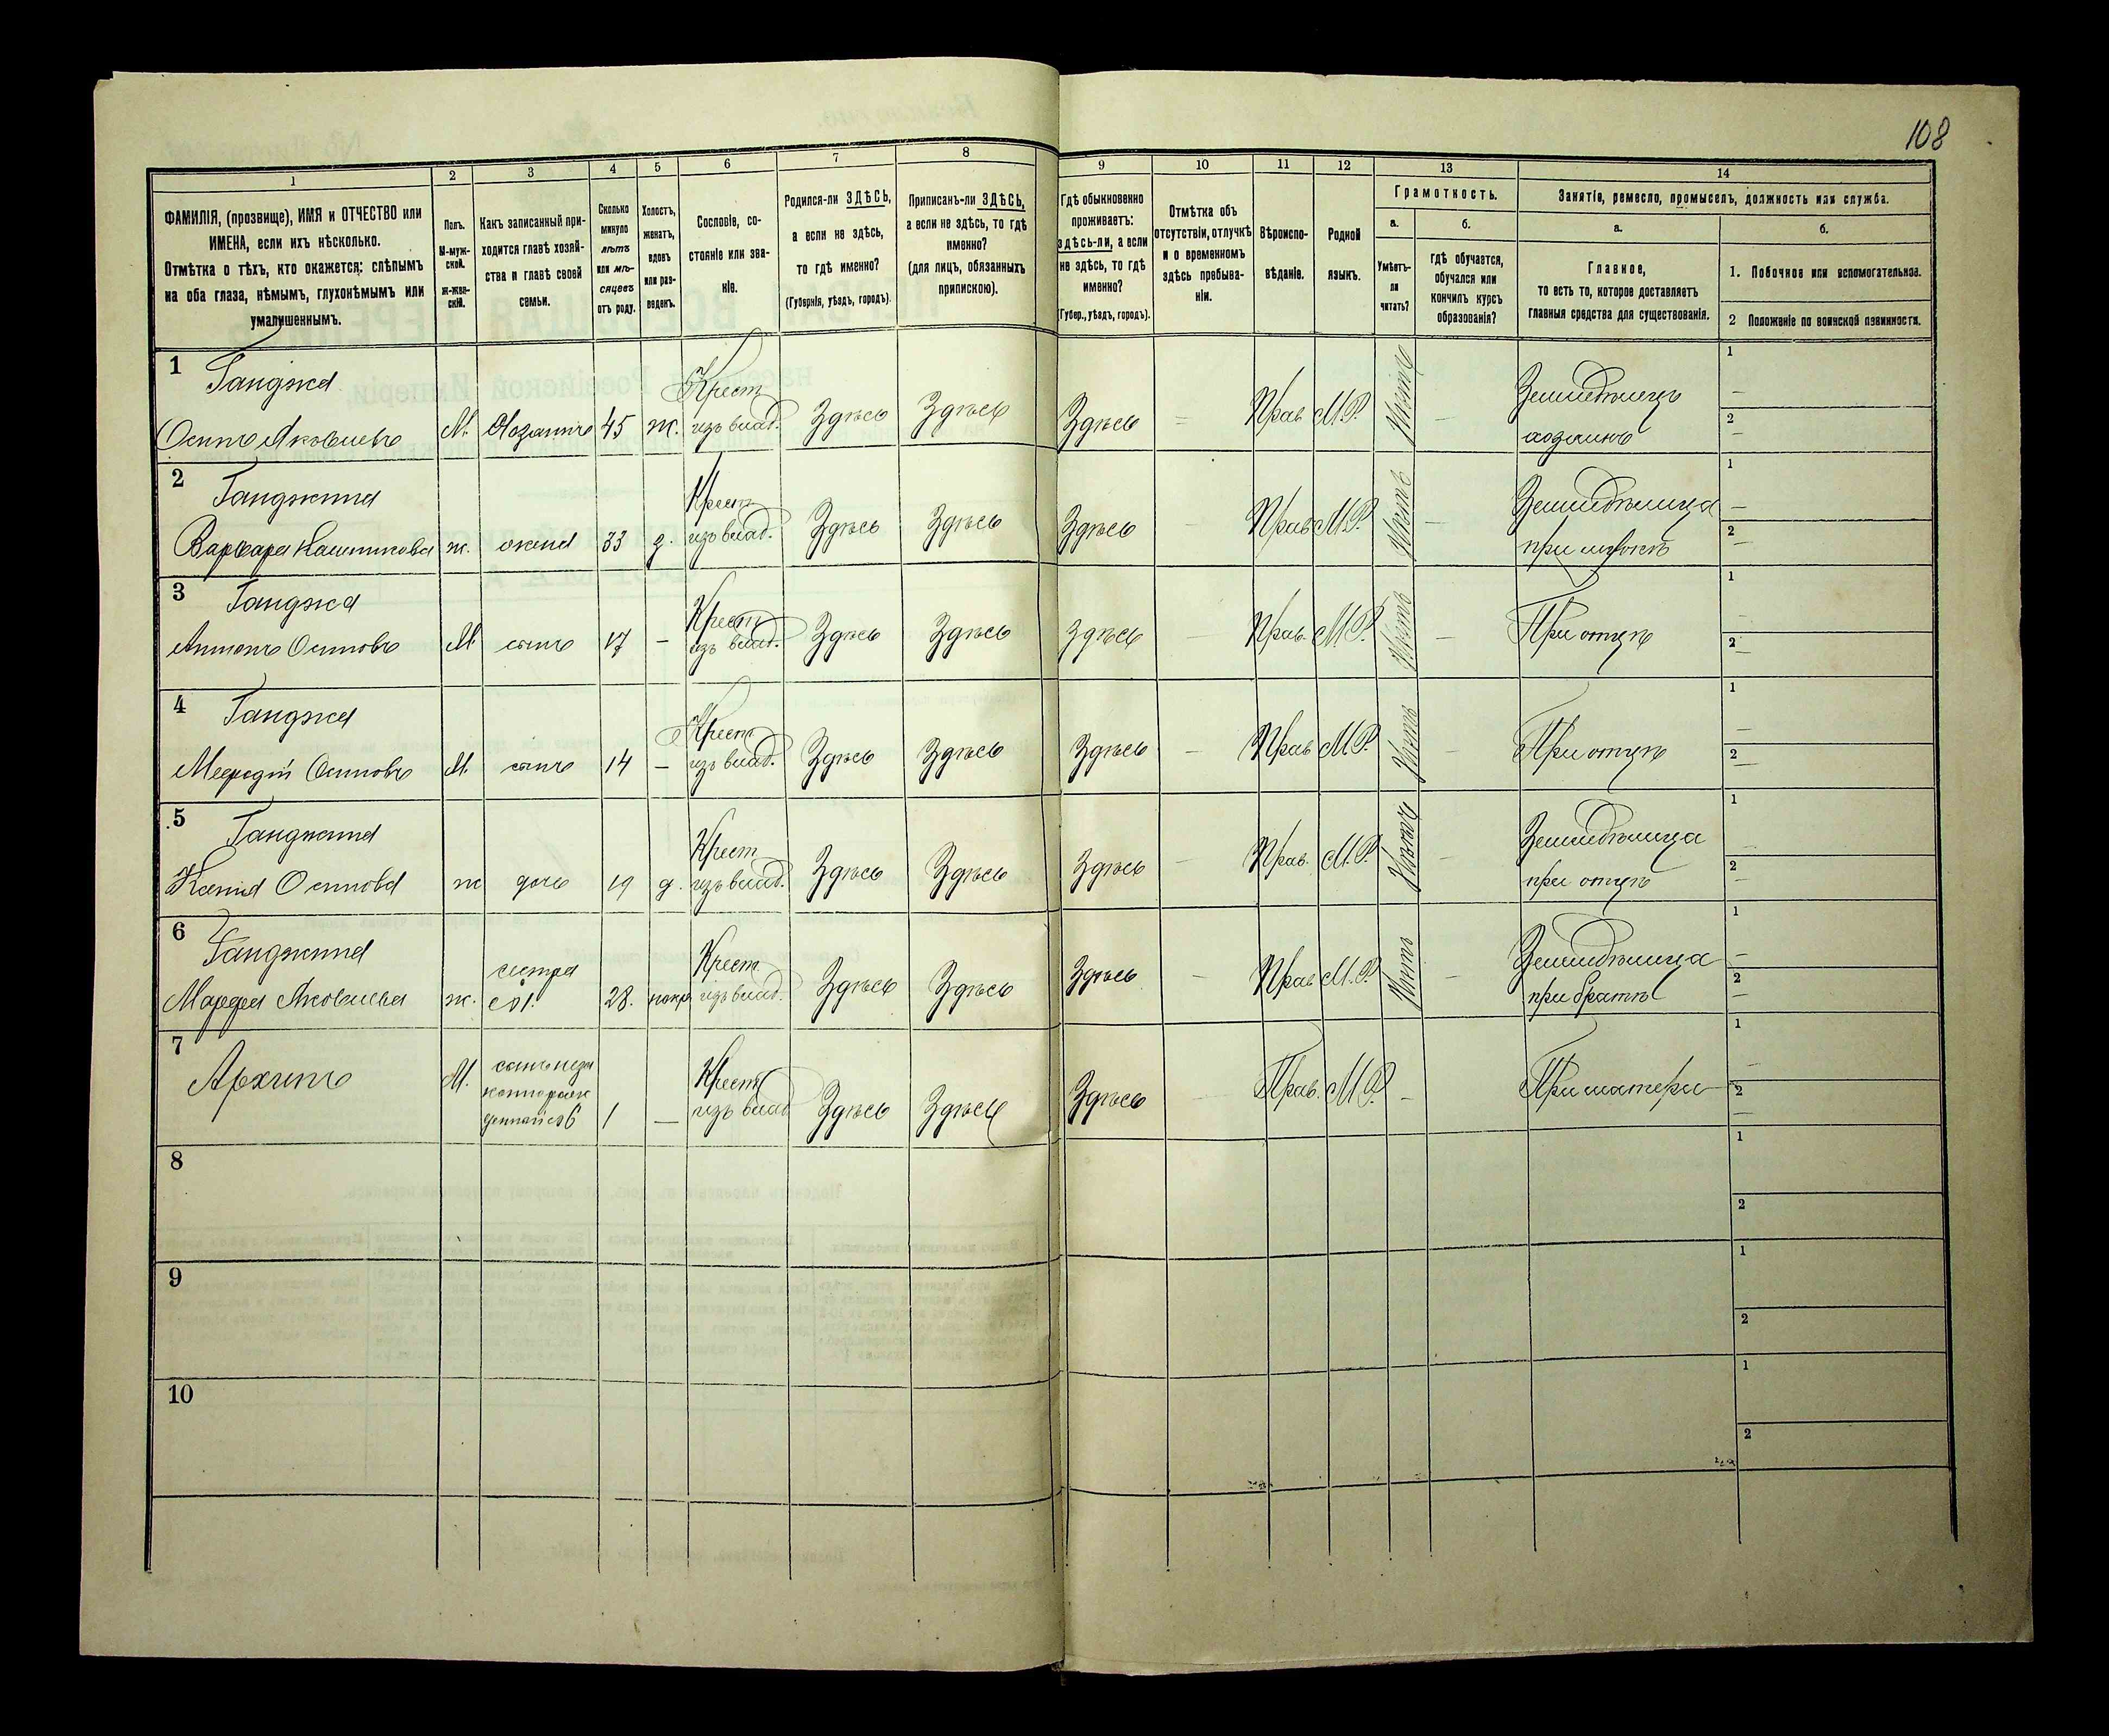 108
1 2 3 4 5 6 7 8 9 10 11 12 13 14
ФАМИЛІЯ, (прозвище), ИМЯ и ОТЧЕСТВО или
ИМЕНА, если ихъ нѣсколько.
Отмѣтка о тѣхъ, кто окажется: слѣпымъ
на оба глаза, нѣмымъ, глухонѣмымъ или
умалишеннымъ.
Полъ.
М-муж-
ской.
ж-жен-
скій.
Какъ записанный при-
ходится главѣ хозяй-
ства и главѣ своей
семьи.
Сколько
минуло
лѣтъ
или мѣ-
сяцевъ
отъ роду.
Холостъ,
женатъ,
вдовъ
или раз-
веденъ.
Сословіе, со-
стояніе или зва-
ніе.
Родился-ли ЗДѢСЬ,
а если не здѣсь,
то гдѣ именно?
(Губернія, уѣздъ, городъ).
Приписанъ-ли ЗДѢСЬ,
а если не здѣсь, то гдѣ
именно?
(для лицъ, обязанныхъ
припискою).
Гдѣ обыкновенно
проживаетъ:
здѣсь-ли, а если
не здѣсь, то гдѣ
именно?
(Губер., уѣздъ, городъ).
Отмѣтка объ
отсутствіи, отлучкѣ
и о временномъ
здѣсь пребыва-
ніи.
Вѣроиспо-
вѣданіе.
Родной
языкъ.
Грамотность.
а.
Умѣетъ-
ли
читать?
б.
гдѣ обучается,
обучался или
кончилъ курсъ
образованія?
Занятіе, ремесло, промыселъ, должность или служба.
а.
Главное,
то есть то, которое доставляетъ
главныя средства для существованія.
б.
1. Побочное или вспомогательное.
2 Положеніе по воинской повинности.
1 Ганджа
Осипъ Яковлевъ М. Хозяинъ 45 ж. Крест. изъ влад. Здѣсь Здѣсь Здѣсь Прав. М.Р. Земледѣлецъ 1
хозяинъ 2
2 Ганджина
Варвара ж. жена 33 з. Крест. изъ влад. Здѣсь Здѣсь Здѣсь Прав. М.Р. Нѣтъ Земледѣлица 1
при мужѣ 2
3 Ганджа
Антонъ Осиповъ М. сынъ 17 — Крест. изъ влад. Здѣсь Здѣсь Здѣсь Прав. М.Р. Нѣтъ При отцѣ 1
2
4 Ганджа
Мефодій Осиповъ М. сынъ 14 — Крест. изъ влад. Здѣсь Здѣсь Здѣсь Прав. М.Р. Нѣтъ При отцѣ 1
2
5 Ганджина
Ксенія Осипова ж дочь 19 д. Крест. изъ влад. Здѣсь Здѣсь Здѣсь Прав. М.Р. Земледѣлица 1
при отцѣ 2
6 Ганджина
Марфа Яковлева ж. сестра гл. 28. покр. Крест. изъ влад. Здѣсь Здѣсь Здѣсь Прав. М.Р. Нѣтъ Земледѣлица 1
при братѣ 2
7 Архипъ М. 1 — Крест. изъ влад. Здѣсь Здѣсь Здѣсь Прав. М.Р. — При матери 1
2
8 1
2
9 1
2
10 1
2